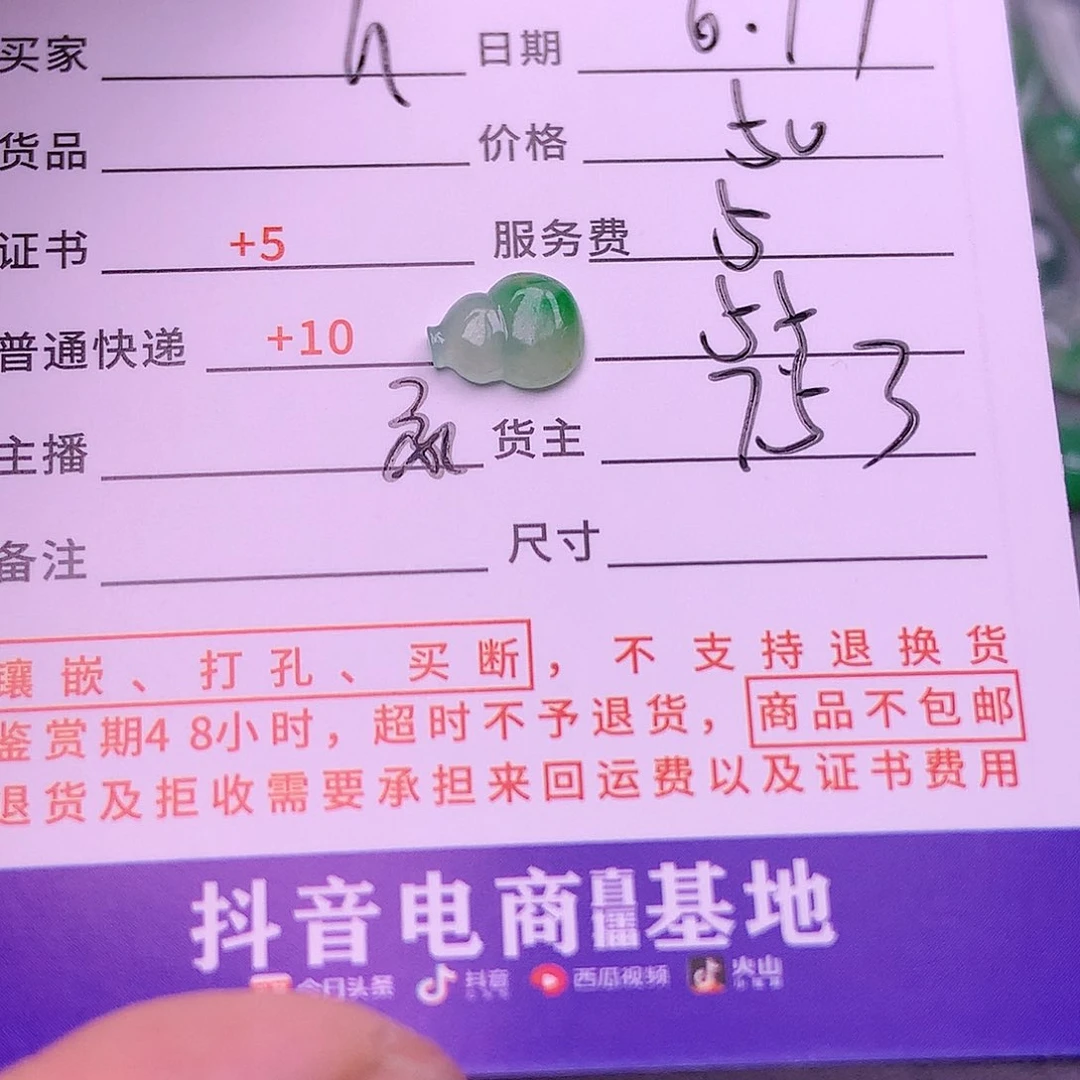 买家 h 日期 6.17
货品 价格 50
证书 +5 服务费 5
普通快递 +10 55
主播 货主 753
备注 尺寸
镶嵌、打孔、买断，不支持退换货
鉴赏期48小时，超时不予退货，商品不包邮
退货及拒收需要承担来回运费以及证书费用
抖音电商直播基地
今日头条 抖音 西瓜视频 火山